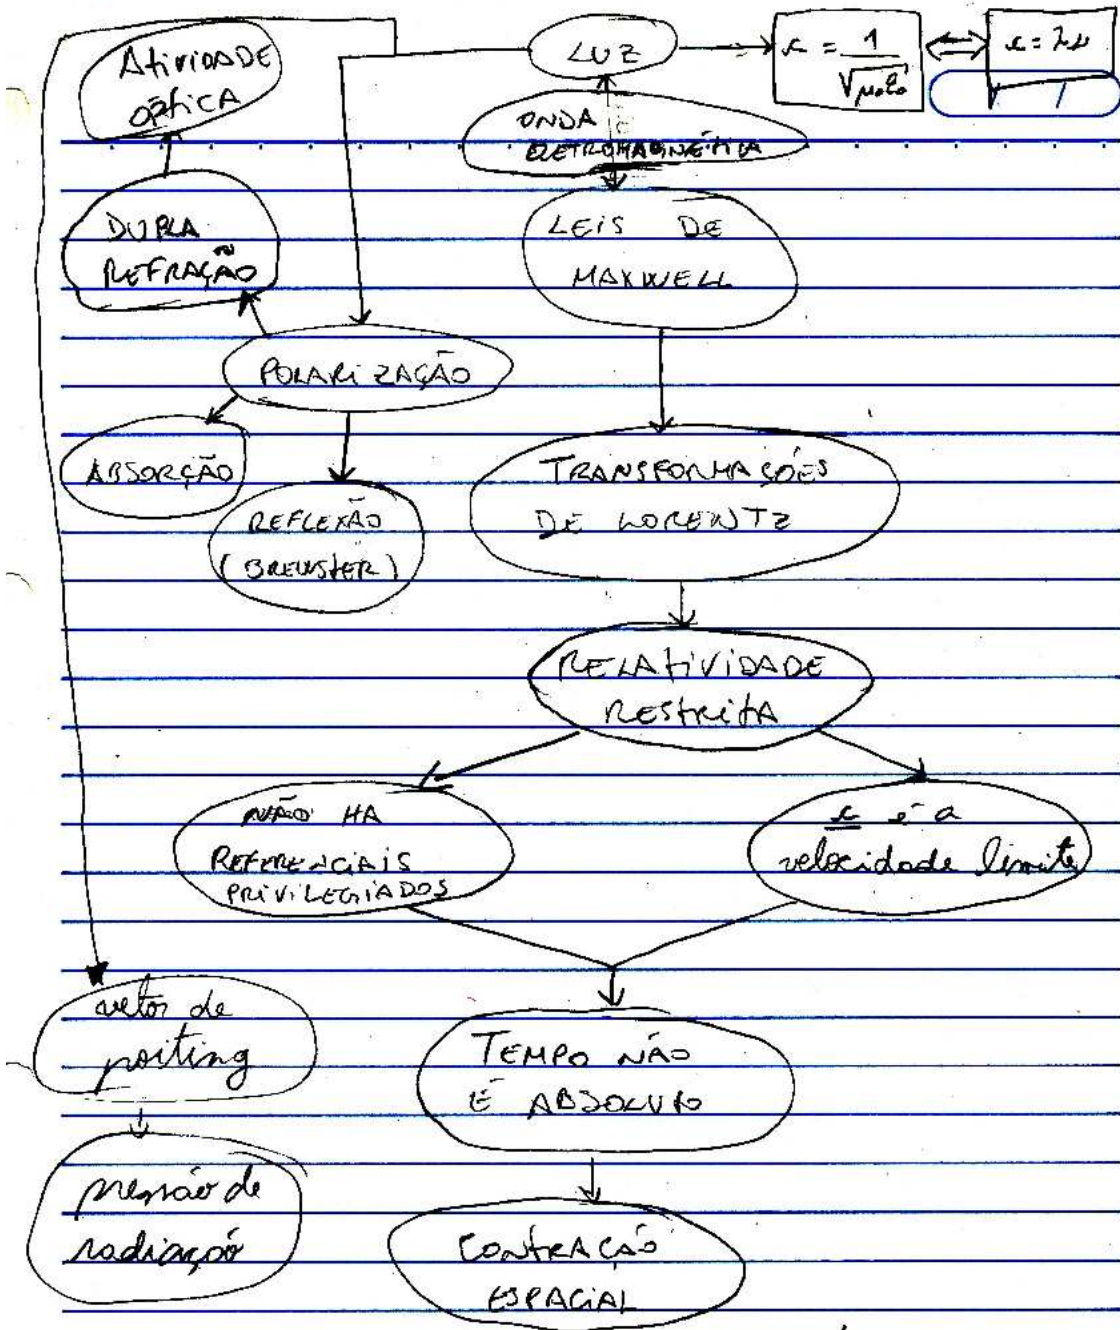 Atividade
óptica
LUZ
c = 1/√μ₀ε₀
c = λν
ONDA
ELETROMAGNÉTICA
DUPLA
REFRAÇÃO
LEIS DE
MAXWELL
POLARIZAÇÃO
ABSORÇÃO
REFLEXÃO
(BREWSTER)
TRANSFORMAÇÕES
DE LORENTZ
RELATIVIDADE
RESTRITA
NÃO HA
REFERENCIAIS
PRIVILEGIADOS
c é a
velocidade limite
vetor de
poiting
TEMPO NÃO
É ABSOLUTO
pressão de
radiação
CONTRAÇÃO
ESPACIAL